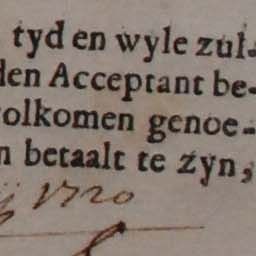 tyd en wyle zul-
den Acceptant be-
volkomen genoe-
n betaalt te zyn,
1720